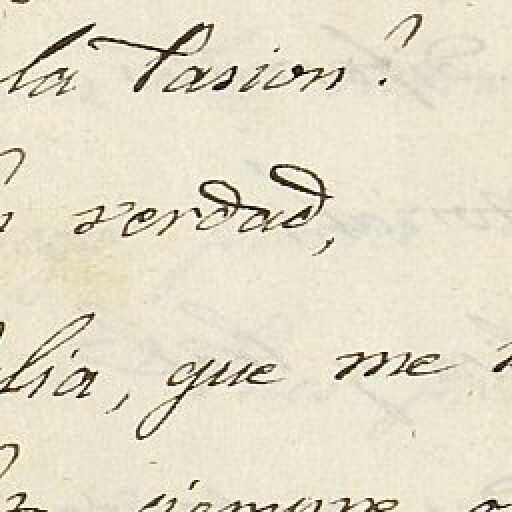 la Pasion?
verdad,
lia, que me
siempre